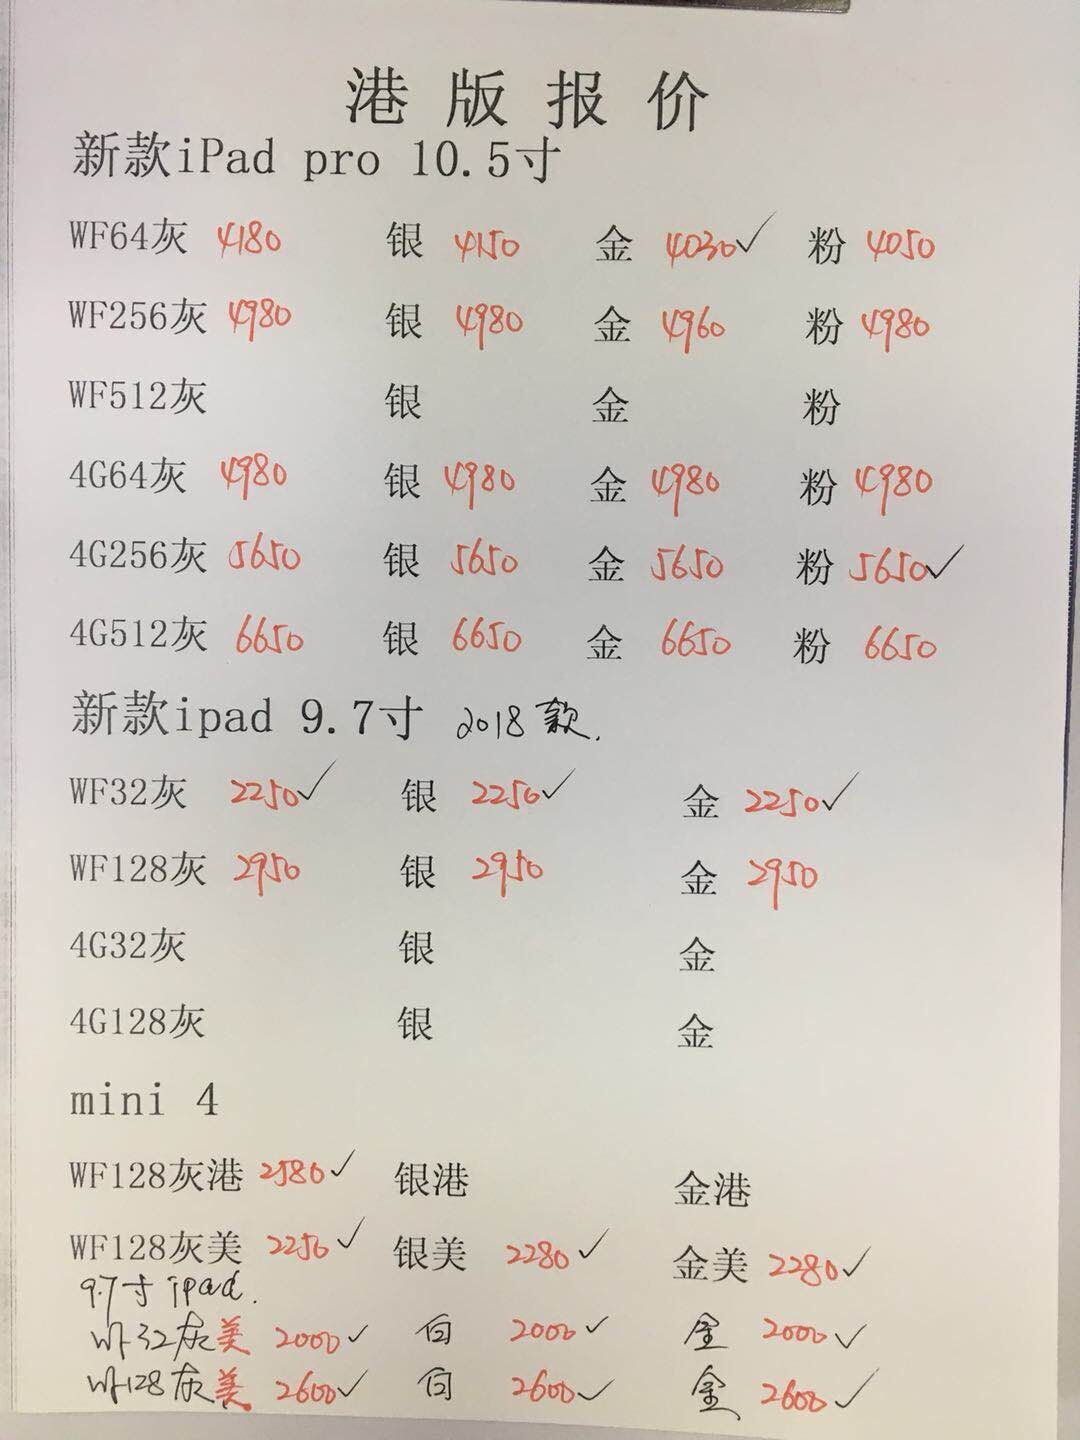 港 版 报 价
新款iPad pro 10.5寸
WF64灰 4180 银 4150 金 4030✓ 粉 4050
WF256灰 4980 银 4980 金 4960 粉 4980
WF512灰 银 金 粉
4G64灰 4980 银 4980 金 4980 粉 4980
4G256灰 5650 银 5650 金 5650 粉 5650✓
4G512灰 6650 银 6650 金 6650 粉 6650
新款ipad 9.7寸 2018款.
WF32灰 2250✓ 银 2250✓ 金 2250✓
WF128灰 2950 银 2950 金 2950
4G32灰 银 金
4G128灰 银 金
mini 4
WF128灰港 2580✓ 银港 金港
WF128灰美 2250✓ 银美 2280✓ 金美 2280✓
9.7寸 ipad.
Wf 32灰美 2000✓ 白 2000✓ 金 2000✓
Wf 128灰美 2600✓ 白 2600✓ 金 2600✓